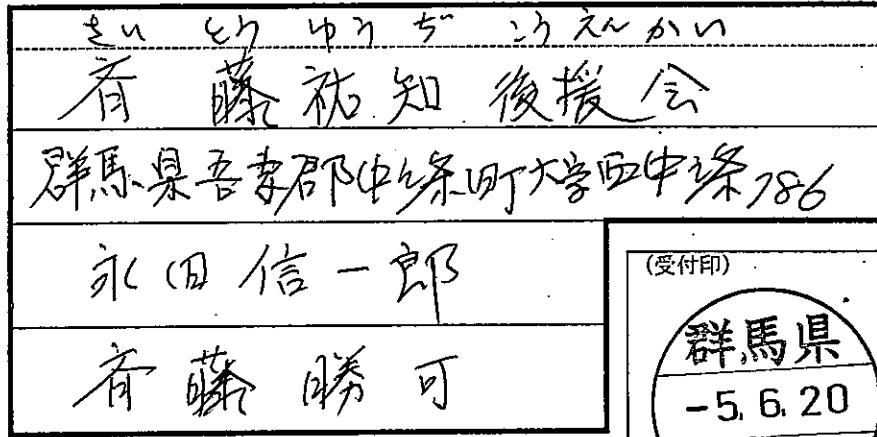 さいとうゆうぢこうえんかい
斉藤祐知後援会
群馬県吾妻郡中之条町大字西中之条786
永田信一郎
斉藤勝可
(受付印)
群馬県
-5.6.20